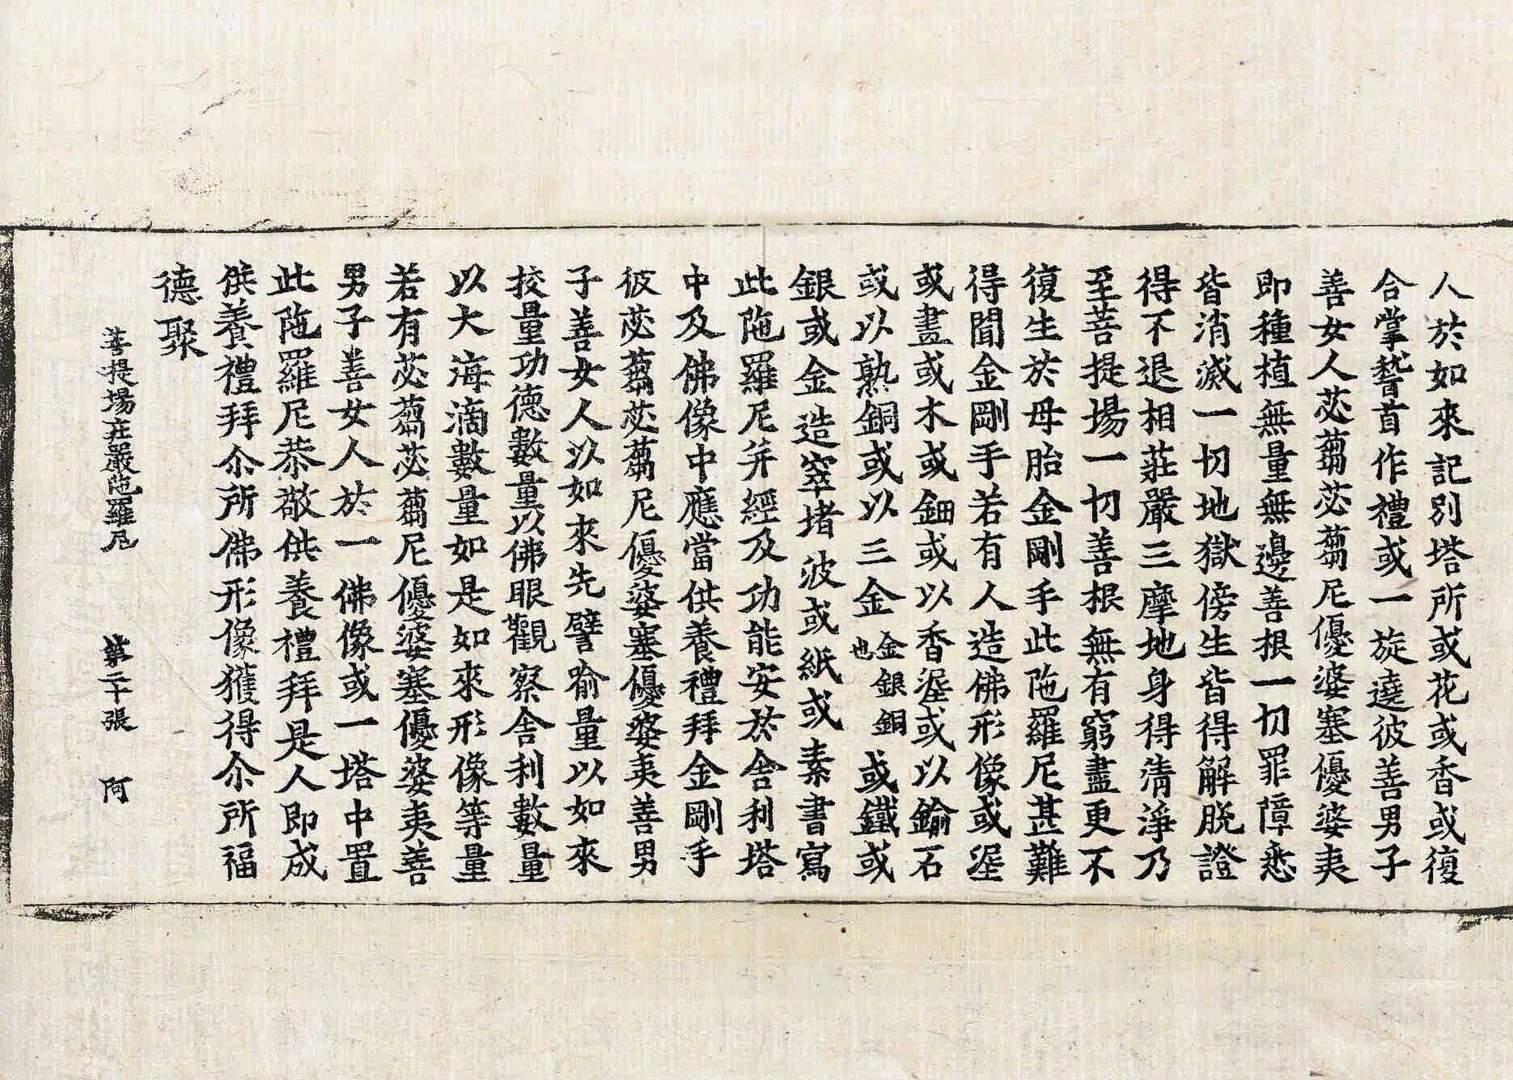 人於如來記別塔所或花或香或復
合掌稽首作禮或一旋遶彼善男子
善女人苾蒭苾蒭尼優婆塞優婆夷
即種植無量無邊善根一切罪障悉
皆消滅一切地獄傍生皆得解脫證
得不退相莊嚴三摩地身得清淨乃
至菩提場一切善根無有窮盡更不
復生於母胎金剛手此陁羅尼甚難
得聞金剛手若有人造佛形像或埿
或畫或木或鈿或以香埿或以鍮石
或以熟銅或以三金金銀銅也或鐵或
銀或金造窣堵波或紙或素書寫
此陁羅尼并經及功能安於舍利塔
中及佛像中應當供養禮拜金剛手
彼苾蒭苾蒭尼優婆塞優婆夷善男
子善女人以如來先譬喻量以如來
挍量功德數量以佛眼觀察舍利數量
以大海滴數量如是如來形像等量
若有苾蒭苾蒭尼優婆塞優婆夷善
男子善女人於一佛像或一塔中置
此陁羅尼恭敬供養禮拜是人即成
供養禮拜尒所佛形像獲得尒所福
德聚
菩提場莊嚴陁羅尼 第二十張 阿